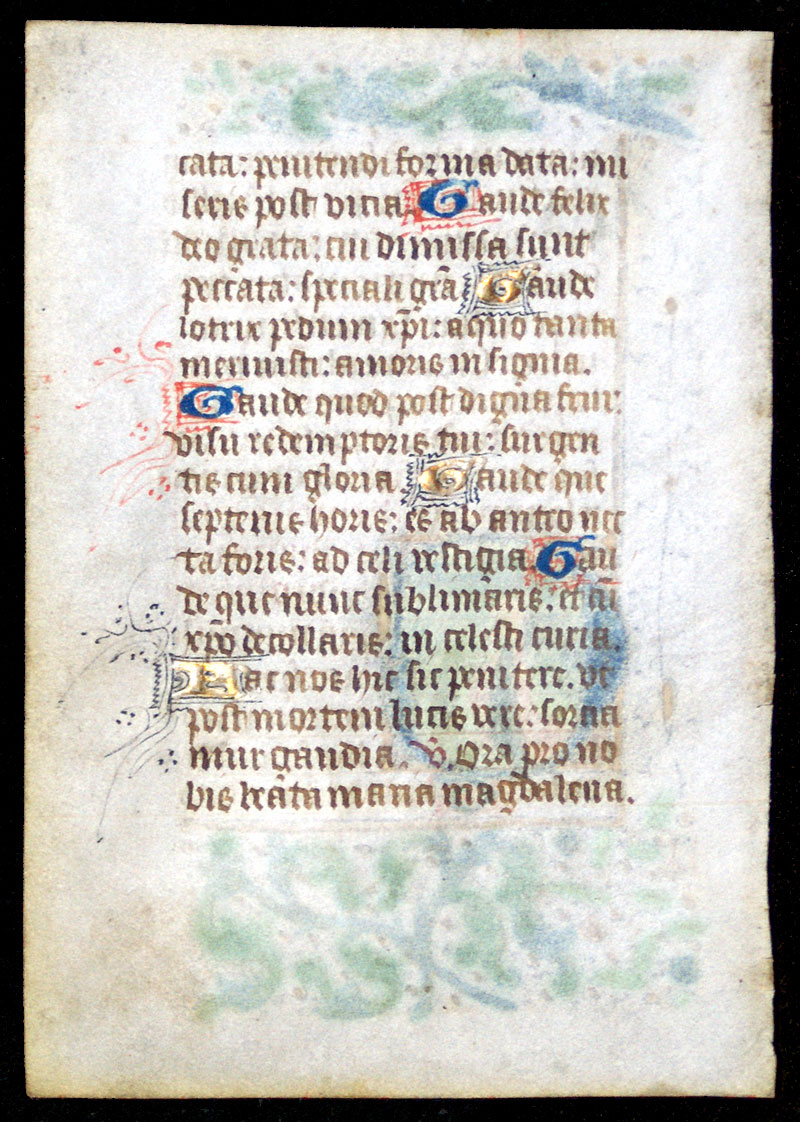 cata: penitendi forma data: mi
seris post vicia. Gaude felix
deo grata: cui dimissa sunt
peccata: speciali gr̄a. Gaude
lotrix pedum xp̄i: a quo tanta
meruisti: amoris insignia.
Gaude quod post digna frui:
visu redemptoris tui: surgen
tis cum gloria. Gaude que
septenis horis: es ab antro vec
ta foris: ad celi vestigia. Gau
de que nunc sublimaris: et cū
xp̄o decollaris: in celesti curia.
Fac nos hic sic penitere. ut
post mortem lucis vere: sorcia
mur gaudia. V. Ora pro no
bis beata maria magdalena.